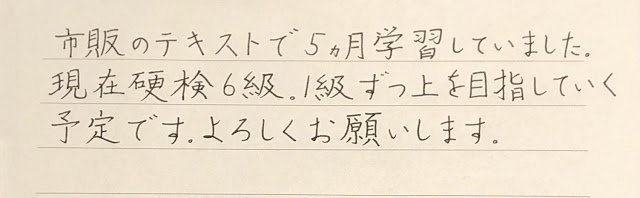 市販のテキストで5ヵ月学習していました。
現在硬検6級。1級ずつ上を目指していく
予定です。よろしくお願いします。